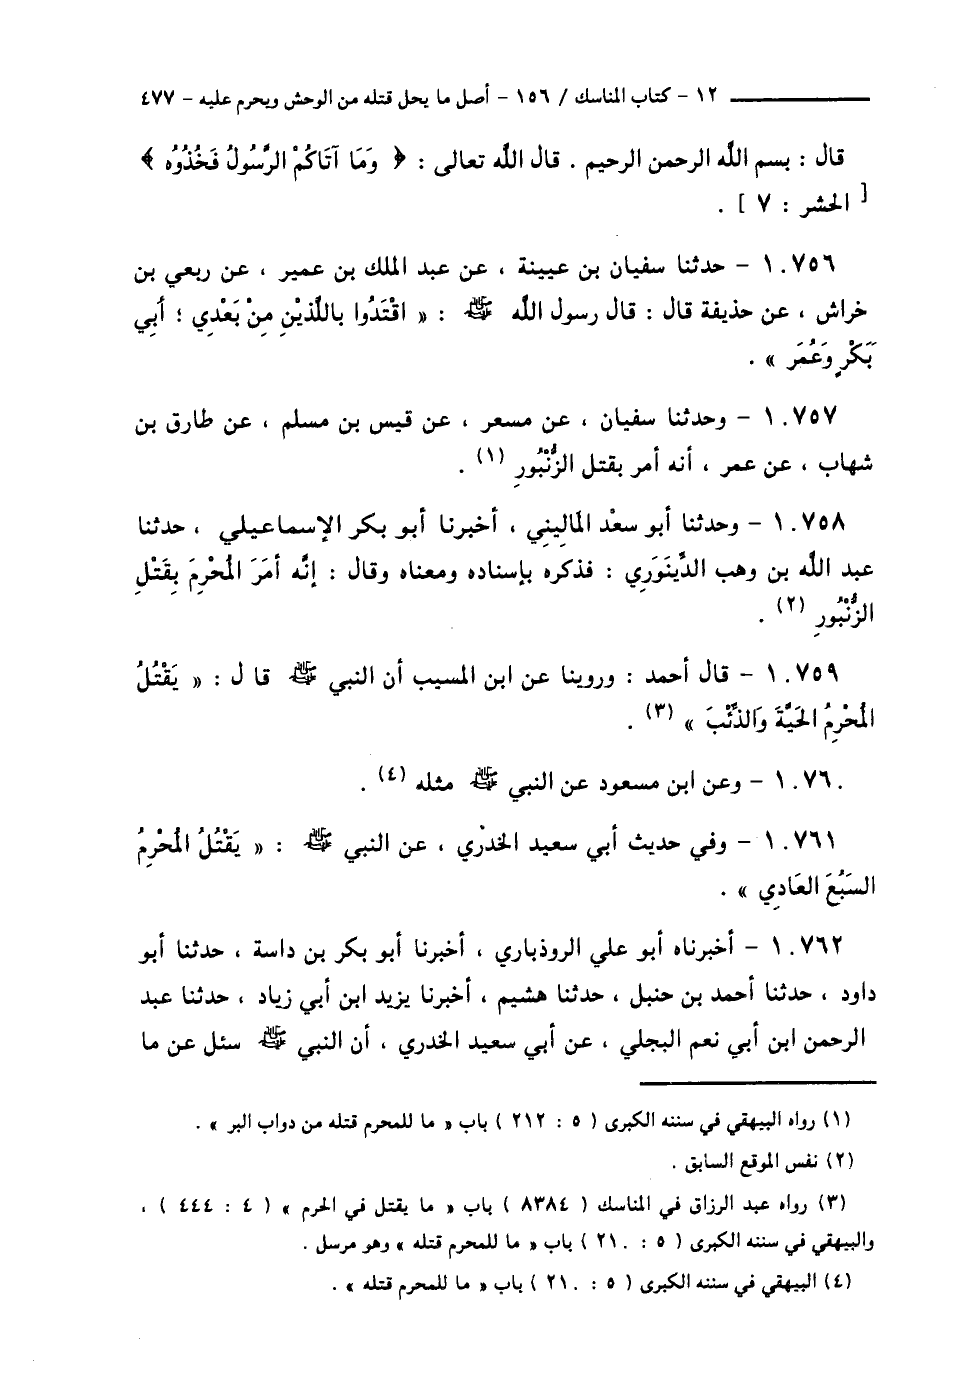 ١٢ - كتاب المناسك / ١٥٦ - أصل ما يحل قتله من الوحش ويحرم عليه - ٤٧٧
قال : بسم الله الرحمن الرحيم . قال الله تعالى : ﴿ وَمَا آتَاكُمْ الرَّسُولُ فَخُذُوُه ﴾
[ الحشر : ٧ ] .
١٠٧٥٦ - حدثنا سفيان بن عيينة ، عن عبد الملك بن عمير ، عن ربعي بن
خراش ، عن حذيفة قال : قال رسول الله ﷺ : « اقْتَدُوا باللَّذيْنِ مِنْ بَعْدِي ؛ أبِي
بَكْرٍ وَعُمَرَ » .
١٠٧٥٧ - وحدثنا سفيان ، عن مسعر ، عن قيس بن مسلم ، عن طارق بن
شهاب ، عن عمر ، أنه أمر بقتل الزُّنْبُورِ (١) .
١٠٧٥٨ - وحدثنا أبو سعْد المَاليِني ، أخبرنا أبو بكر الإسماعيلي ، حدثنا
عبد الله بن وهب الدِّينَوَرِي : فذكره بإسناده ومعناه وقال : إنَّه أمَرَ المُحْرِمَ بِقَتْلِ
الزُّنْبُورِ (٢) .
١٠٧٥٩ - قال أحمد : وروينا عن ابن المسيب أن النبي ﷺ قا ل : « يَقْتُلُ
المُحْرِمُ الحَيَّةَ وَالذِّئْبَ » (٣) .
١٠٧٦٠ - وعن ابن مسعود عن النبي ﷺ مثله (٤) .
١٠٧٦١ - وفي حديث أبي سعيد الخدْري ، عن النبي ﷺ : « يَقْتُلُ المُحْرِمُ
السَبُعَ العَادِي » .
١٠٧٦٢ - أخبرناه أبو علي الروذباري ، أخبرنا أبو بكر بن داسة ، حدثنا أبو
داود ، حدثنا أحمد بن حنبل ، حدثنا هشيم ، أخبرنا يزيد ابن أبي زياد ، حدثنا عبد
الرحمن ابن أبي نعم البجلي ، عن أبي سعيد الخدري ، أن النبي ﷺ سئل عن ما
(١) رواه البيهقي في سننه الكبرى ( ٥ : ٢١٢ ) باب « ما للمحرم قتله من دواب البر » .
(٢) نفس الموقع السابق .
(٣) رواه عبد الرزاق في المناسك ( ٨٣٨٤ ) باب « ما يقتل في الحرم » ( ٤ : ٤٤٤ ) ،
والبيهقي في سننه الكبرى ( ٥ : ٢١٠ ) باب « ما للمحرم قتله » وهو مرسل .
(٤) البيهقي في سننه الكبرى ( ٥ : ٢١٠ ) باب « ما للمحرم قتله » .